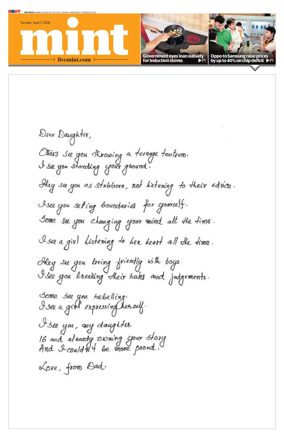 mint
Sunday, April 5, 2026
livemint.com
Government eyes loan subsidy
for induction stoves
Oppo to Samsung raise prices
by up to 40% on chip deficit
Dear Daughter,
Others see you throwing a teenage tantrum.
I see you standing your ground.
They see you as stubborn, not listening to their advice.
I see you setting boundaries for yourself.
Some see you changing your mind all the time.
I see a girl listening to her heart all the time.
They see you being friendly with boys.
I see you breaking their rules and judgements.
Some see you rebelling.
I see a girl expressing herself.
I see you, my daughter
16 and already owning your story
And I couldn't be more proud.
Love, from Dad.